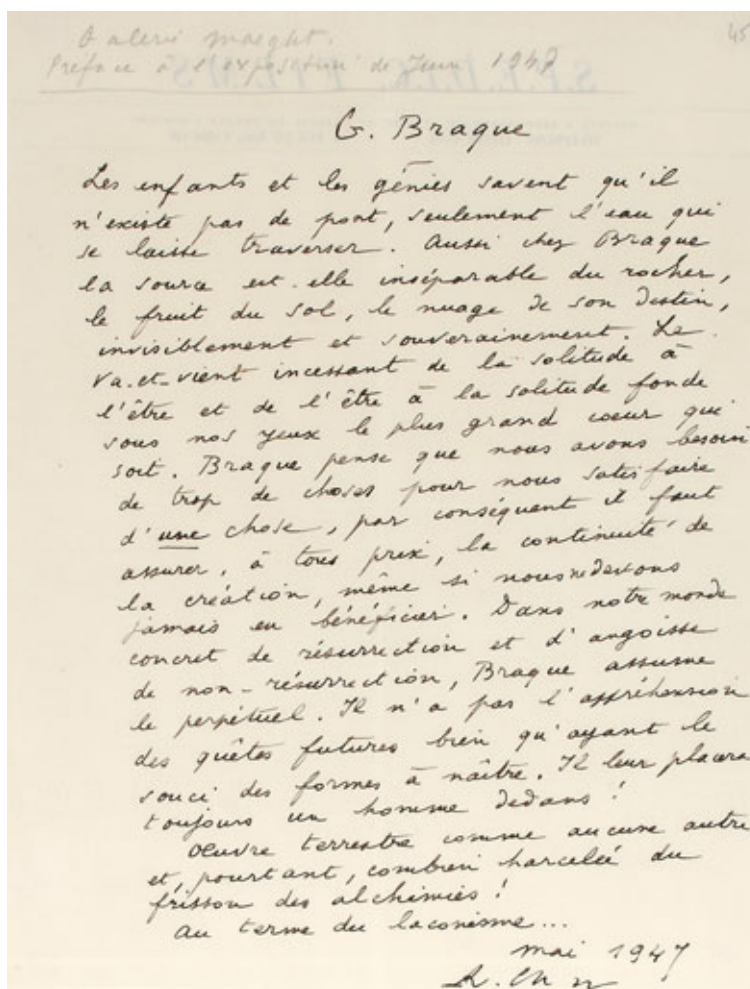 Galerie Maeght.
Préface à l'exposition de Juin 1947
45
G. Braque
Les enfants et les génies savent qu'il
n'existe pas de pont, seulement l'eau qui
se laisse traverser. Aussi chez Braque
la source est-elle inséparable du rocher,
le fruit du sol, le nuage de son destin,
invisiblement et souverainement. Le
va-et-vient incessant de la solitude à
l'être et de l'être à la solitude fonde
sous nos yeux le plus grand coeur qui
soit. Braque pense que nous avons besoin
de trop de choses pour nous satisfaire
d'une chose, par conséquent il faut
assurer, à tous prix, la continuité de
la création, même si nous ne devons
jamais en bénéficier. Dans notre monde
concret de résurrection et d'angoisse
de non-résurrection, Braque assume
le perpétuel. Il n'a pas l'appréhension
des quêtes futures bien qu'ayant le
souci des formes à naître. Il leur placera
toujours un homme dedans !
Oeuvre terrestre comme aucune autre
et, pourtant, combien harcelée du
frisson des alchimies !
Au terme du laconisme...
mai 1947
R. Char